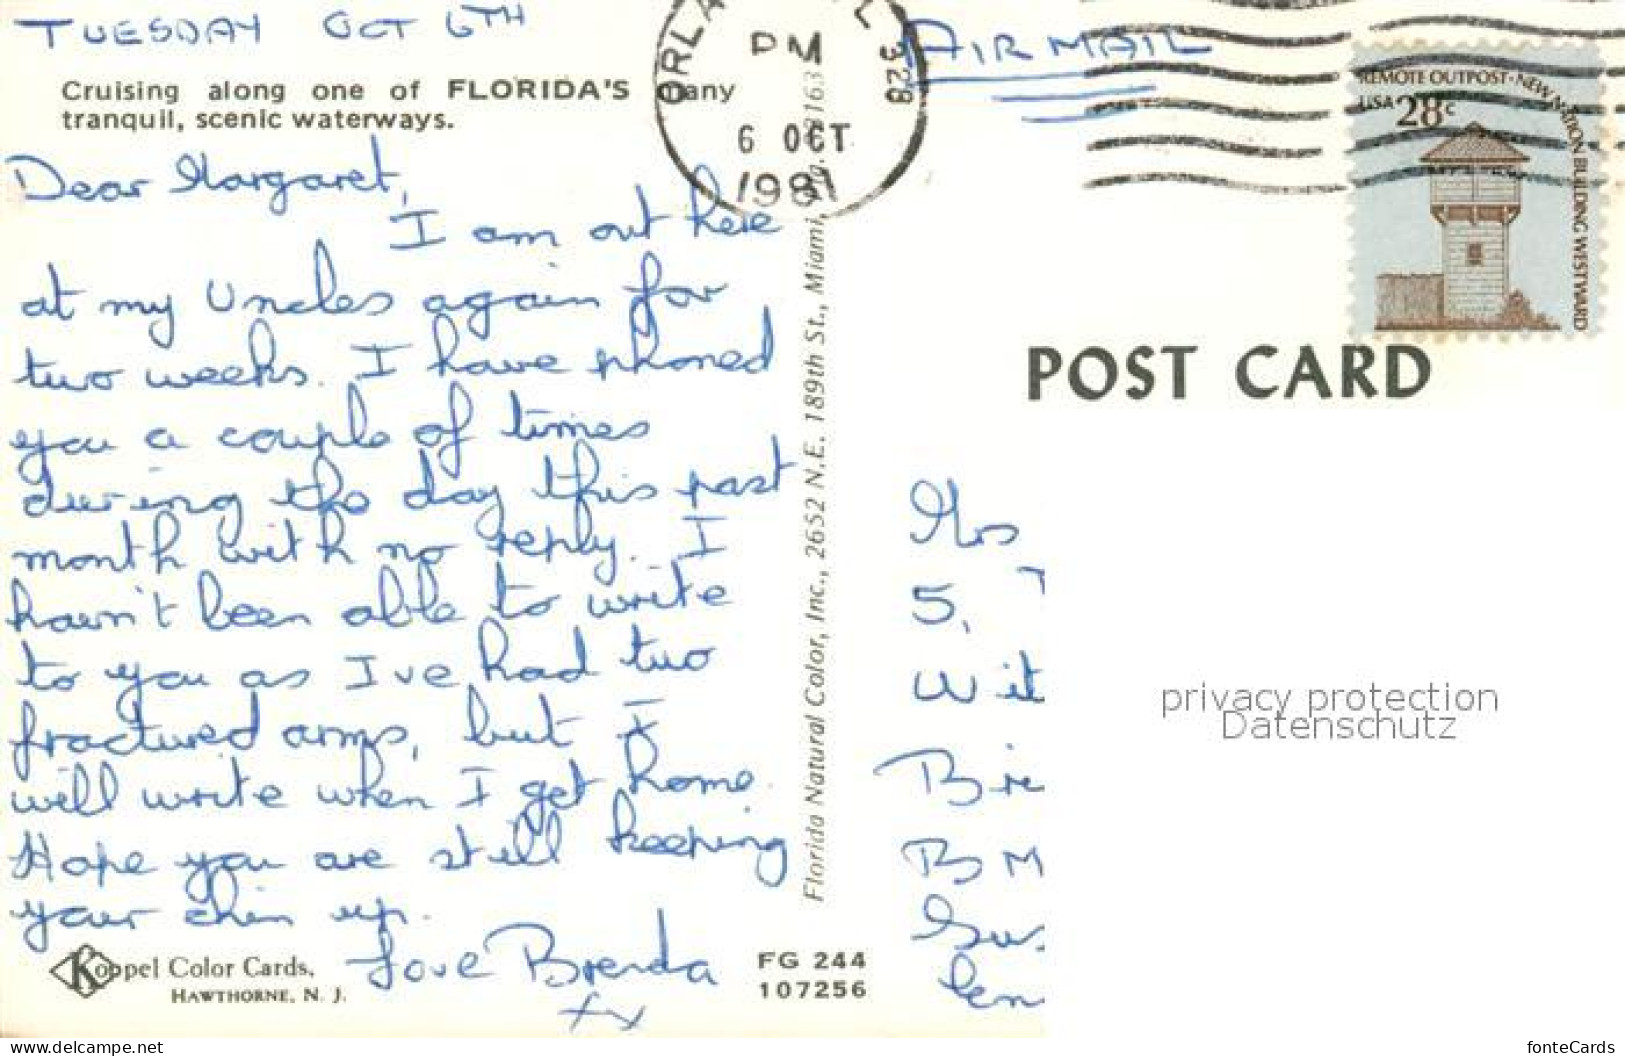 TUESDAY OCT 6TH
AIR MAIL
Cruising along one of FLORIDA'S many
tranquil, scenic waterways.
PM
6 OCT
1981
328
REMOTE OUTPOST · NEW NATION BUILDING WESTWARD
USA 28c
Dear Margaret,
I am out here
at my Uncles again for
two weeks. I have phoned
you a couple of times
during the day this past
month with no reply. I
havn't been able to write
to you as I've had two
fractured arms, but I
will write when I get home.
Hope you are still keeping
your chin up.
Love Brenda
xy
Koppel Color Cards,
HAWTHORNE, N. J.
FG 244
107256
Florida Natural Color, Inc., 2652 N.E. 189th St., Miami,
POST CARD
Mrs
5,
Wit
Bri
BM
Sus
len
privacy protection
Datenschutz
www.delcampe.net
fonteCards